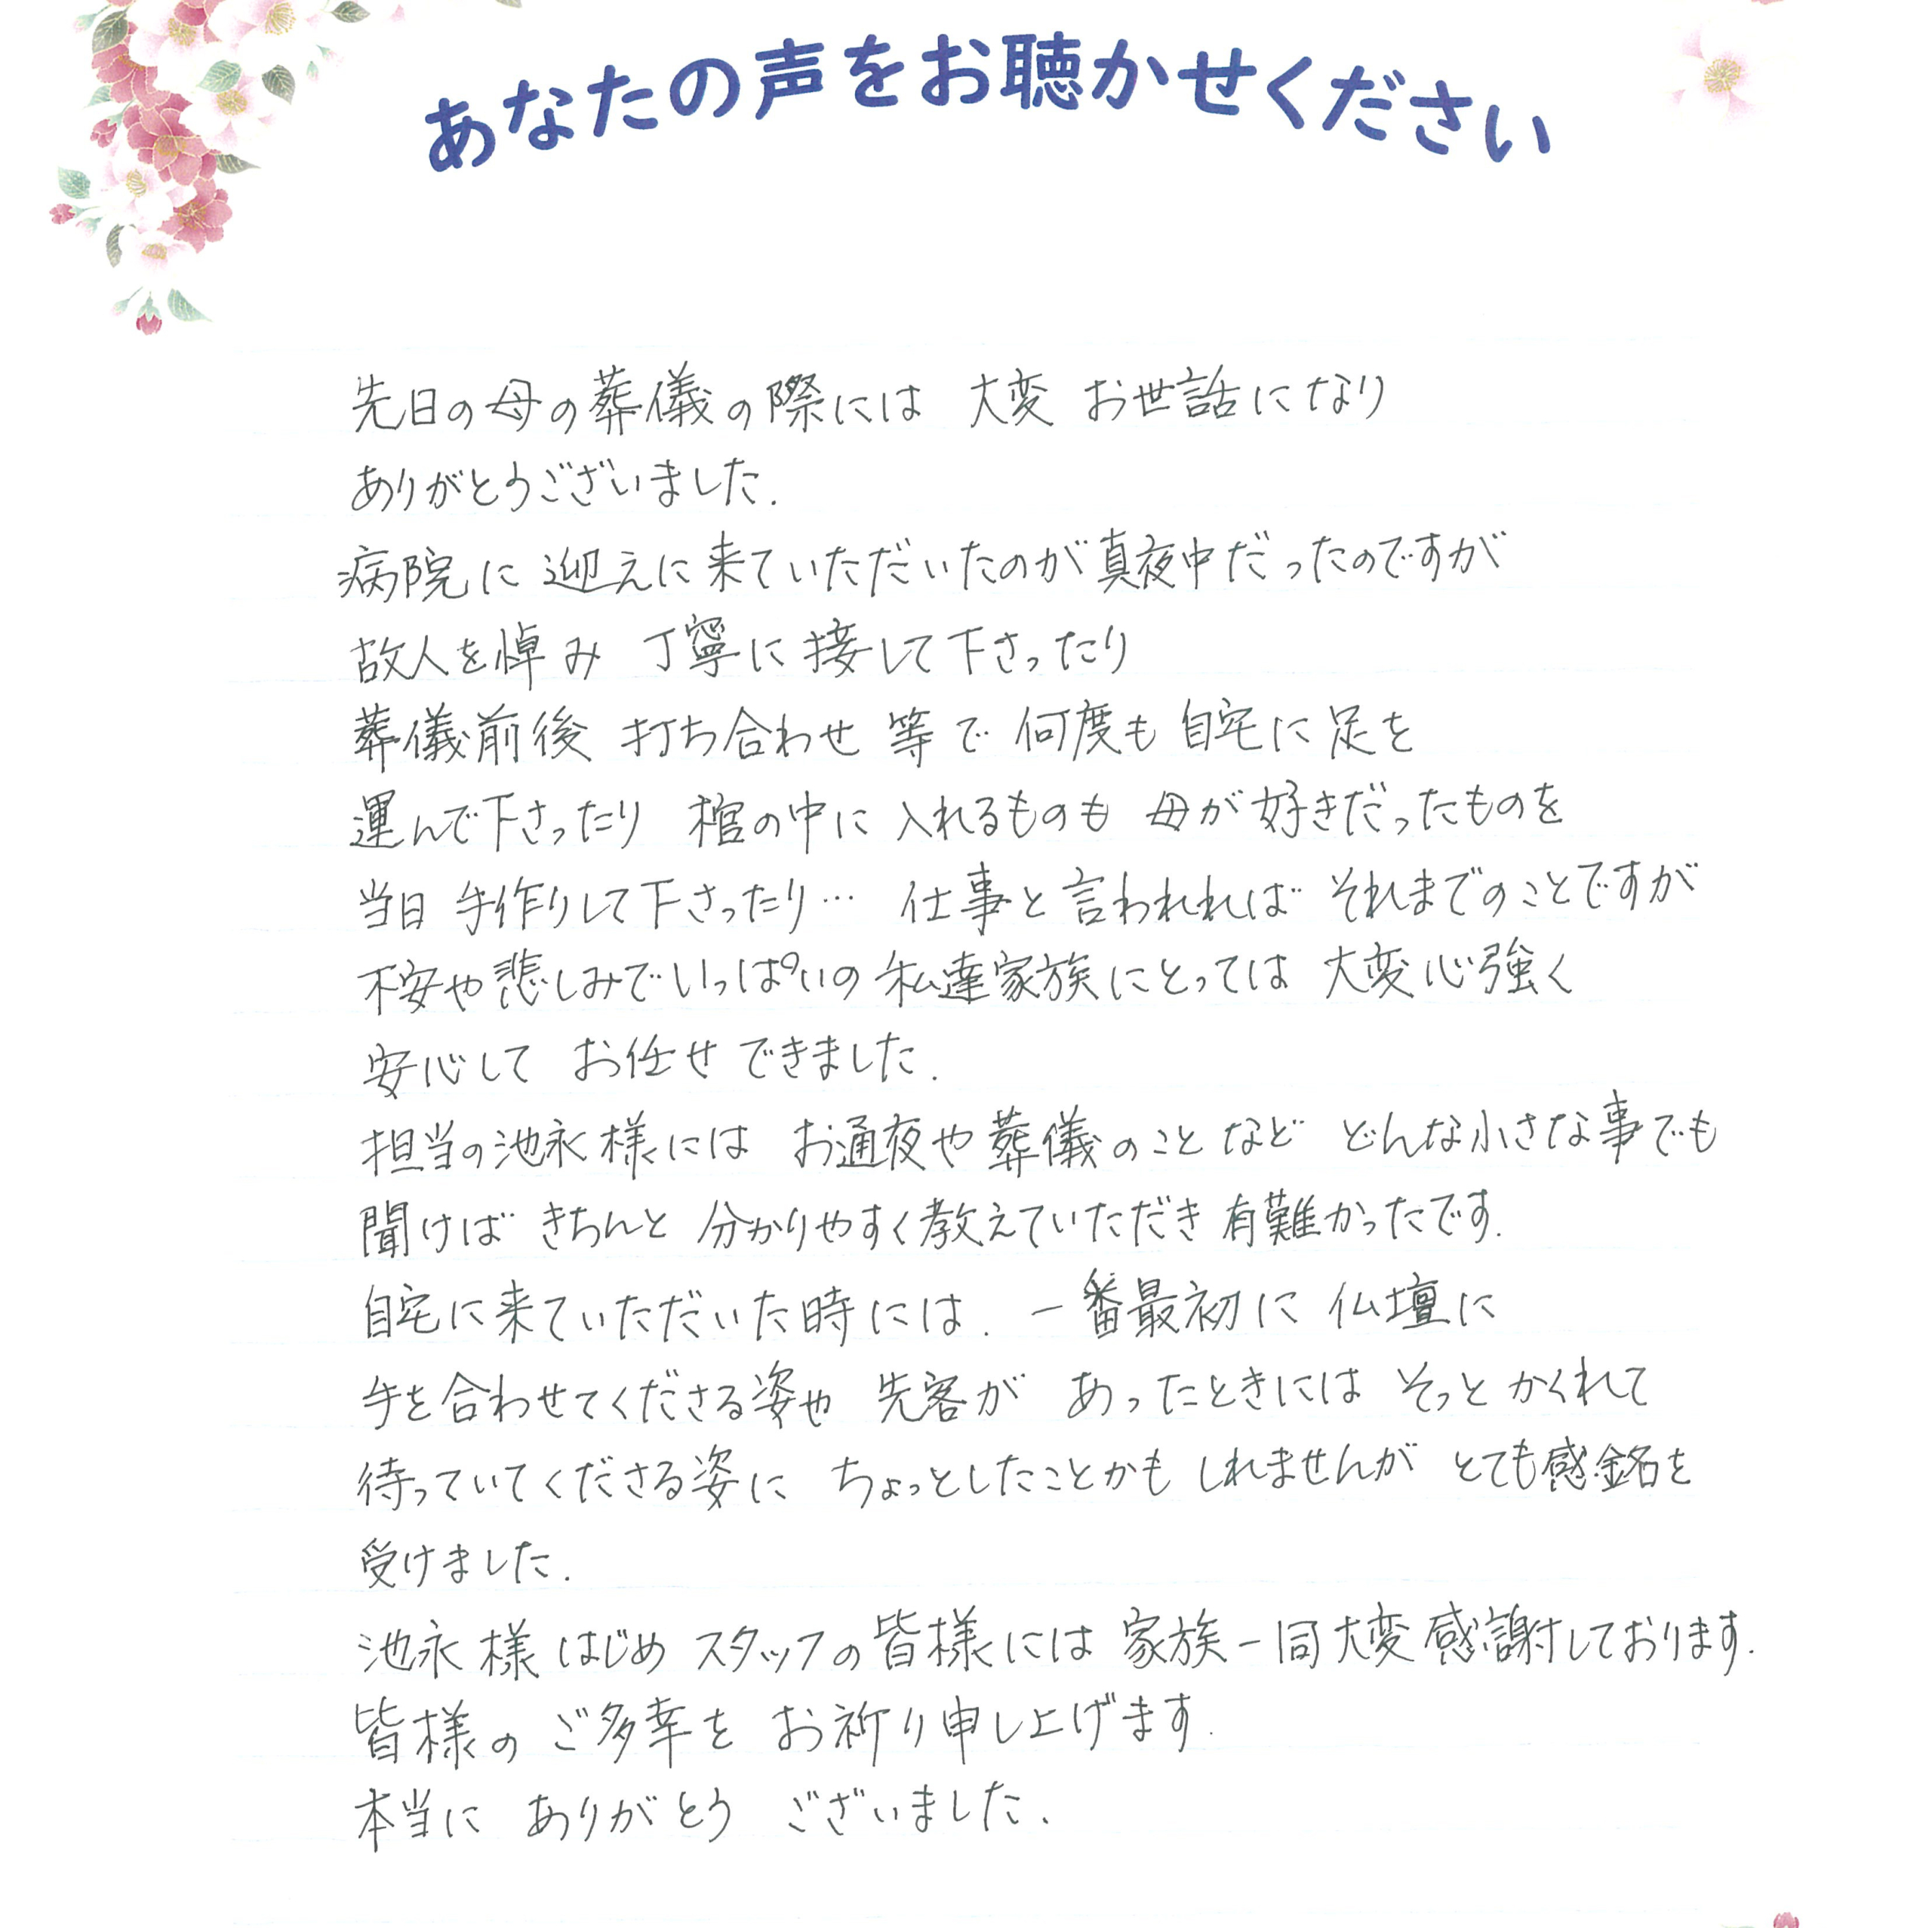 あなたの声をお聴かせください
先日の母の葬儀の際には 大変 お世話になり
ありがとうございました.
病院に 迎えに来ていただいたのが真夜中だったのですが
故人を悼み 丁寧に接して下さったり
葬儀前後 打ち合わせ 等で 何度も 自宅に足を
運んで下さったり 棺の中に入れるものも 母が好きだったものを
当日 手作りして下さったり… 仕事と言われれば それまでのことですが
不安や悲しみでいっぱいの私達家族にとっては 大変心強く
安心して お任せできました.
担当の池永様には お通夜や葬儀のことなど どんな小さな事でも
聞けば きちんと 分かりやすく教えていただき 有難かったです.
自宅に来ていただいた時には. 一番最初に 仏壇に
手を合わせてくださる姿や 先客が あったときには そっと かくれて
待っていてくださる姿に ちょっとしたことかも しれませんが とても感銘を
受けました.
池永様はじめ スタッフの皆様には 家族一同大変感謝しております.
皆様の ご多幸を お祈り申し上げます.
本当に ありがとう ございました.